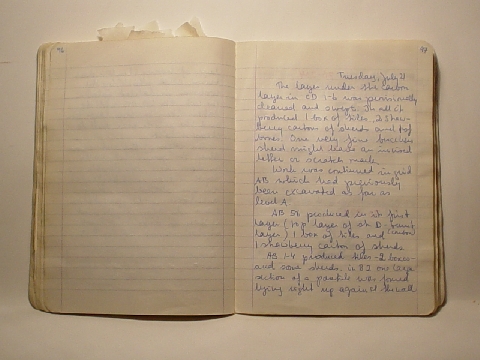 96
97
Tuesday, July 21
The layer under the carbon
layer in CD 1-6 was previously
cleaned and swept. In all it
produced 1 box of tiles, 2 straw-
berry cartons of sherds and of
bones. One very fine bucchero
sherd might have an incised
letter or scratch mark.
Work was continued in grid
AB which had previously
been excavated as far as
level A
AB 56 produced in its first
layer (top layer of
layer) 1 box of tiles and (carbon)
1 strawberry carton of sherds
AB 1-4 produced tiles - 2 boxes -
and some sherds. In B3 one large
section of a was found
lying right up against the wall